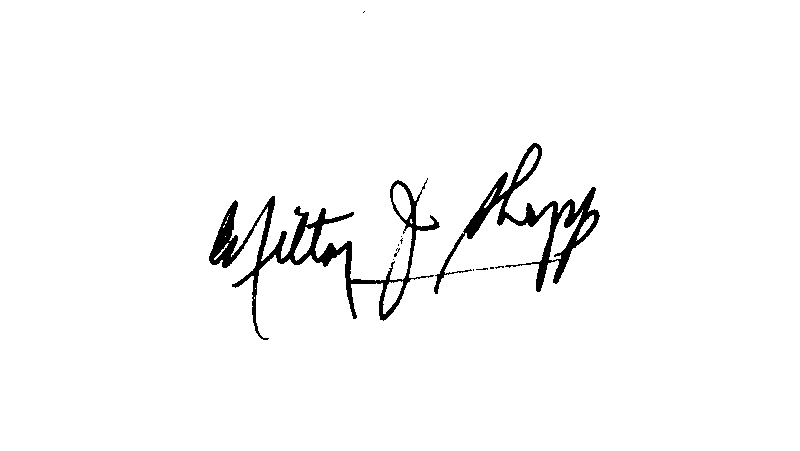 Milton J. Shapp